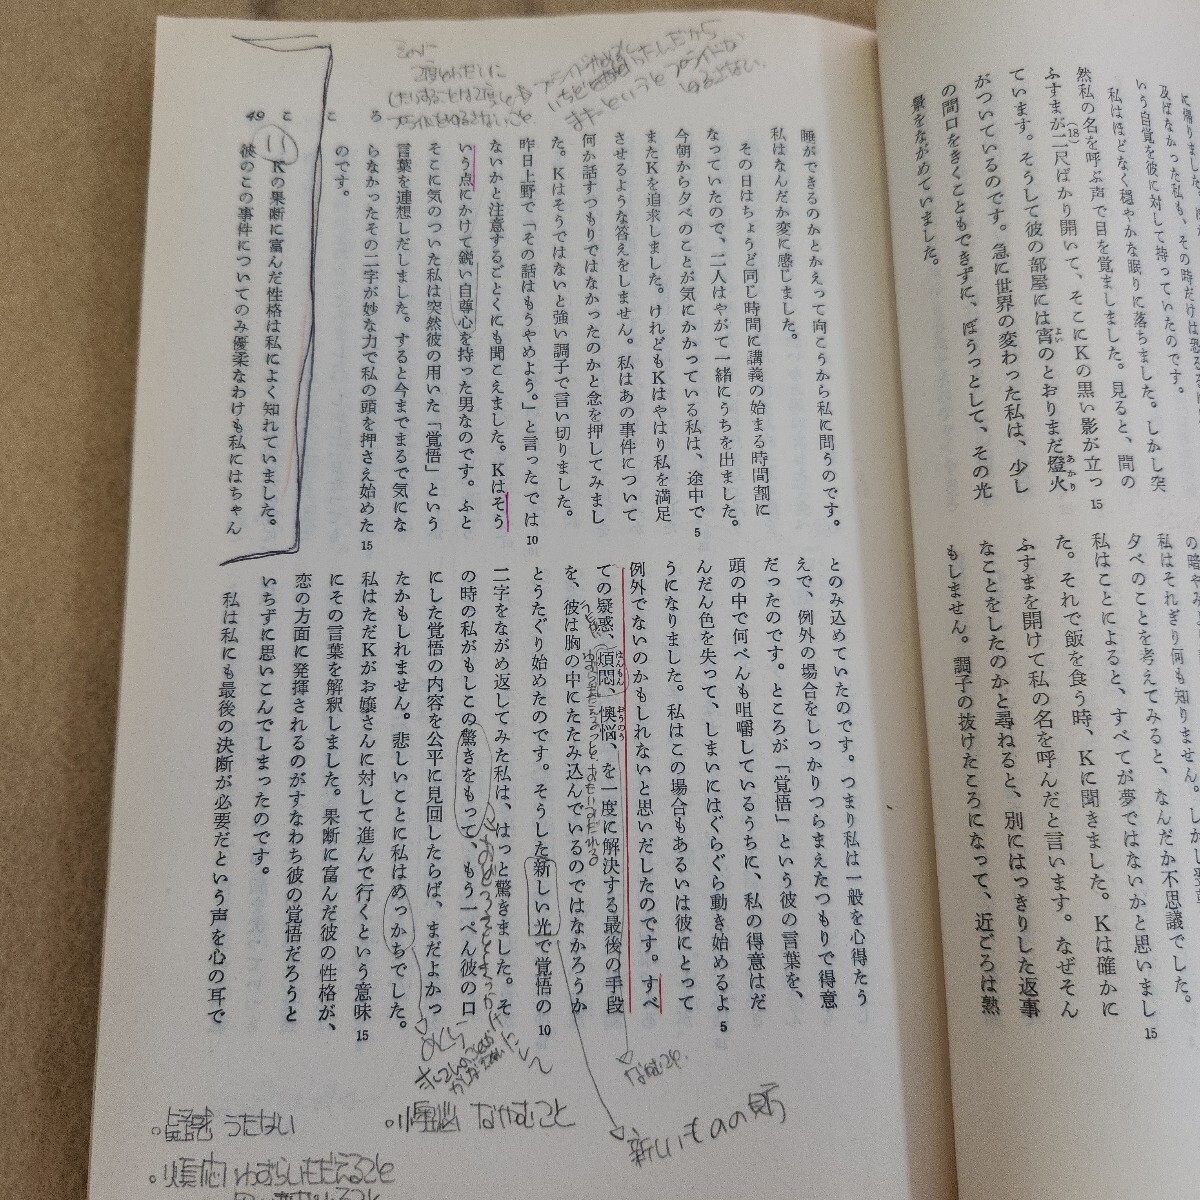 に帰りました
及ばなかった私も、その時だけは恐るる
いう自覚を彼に対して持っていたのです。
私はほどなく穏やかな眠りに落ちました。しかし突
然私の名を呼ぶ声で目を覚ましました。見ると、間の
ふすまが二尺ばかり開いて、そこにKの黒い影が立っ
(18)
15
ています。そうして彼の部屋には宵のとおりまだ燈火
よい
あかり
がついているのです。急に世界の変わった私は、少し
の間口をきくこともできずに、ぼうっとして、その光
景をながめていました。
私はそれぎり何も知りません。しかし
夕べのことを考えてみると、なんだか不思議でした。
私はことによると、すべてが夢ではないかと思いまし
15
た。それで飯を食う時、Kに聞きました。Kは確かに
ふすまを開けて私の名を呼んだと言います。なぜそん
なことをしたのかと尋ねると、別にはっきりした返事
もしません。調子の抜けたころになって、近ごろは熟
睡ができるのかとかえって向こうから私に問うのです。
私はなんだか変に感じました。
その日はちょうど同じ時間に講義の始まる時間割に
なっていたので、二人はやがて一緒にうちを出ました。
今朝から夕べのことが気にかかっている私は、途中で
5
またKを追求しました。けれどもKはやはり私を満足
させるような答えをしません。私はあの事件について
何か話すつもりではなかったのかと念を押してみまし
た。Kはそうではないと強い調子で言い切りました。
昨日上野で「その話はもうやめよう。」と言ったでは
10
ないかと注意するごとくにも聞こえました。Kはそう
いう点にかけて鋭い自尊心を持った男なのです。ふと
そこに気のついた私は突然彼の用いた「覚悟」という
言葉を連想しだしました。すると今までまるで気にな
らなかったその二字が妙な力で私の頭を押さえ始めた
15
のです。
Kの果断に富んだ性格は私によく知れていました。
彼のこの事件についてのみ優柔なわけも私にはちゃん
49 こころ
とのみ込めていたのです。つまり私は一般を心得たう
えで、例外の場合をしっかりつらまえたつもりで得意
だったのです。ところが「覚悟」という彼の言葉を、
頭の中で何べんも咀嚼しているうちに、私の得意はだ
んだん色を失って、しまいにはぐらぐら動き始めるよ
5
うになりました。私はこの場合もあるいは彼にとって
例外でないのかもしれないと思いだしたのです。すべ
ての疑惑、煩悶、懊悩、を一度に解決する最後の手段
はんもん
おうのう
を、彼は胸の中にたたみ込んでいるのではなかろうか
とうたぐり始めたのです。そうした新しい光で覚悟の
10
二字をながめ返してみた私は、はっと驚きました。そ
の時の私がもしこの驚きをもって、もう一ぺん彼の口
にした覚悟の内容を公平に見回したらば、まだよかっ
たかもしれません。悲しいことに私はめっかちでした。
私はただKがお嬢さんに対して進んで行くという意味
15
にその言葉を解釈しました。果断に富んだ彼の性格が、
恋の方面に発揮されるのがすなわち彼の覚悟だろうと
いちずに思いこんでしまったのです。
私は私にも最後の決断が必要だという声を心の耳で
なやむこと
懊悩 なやむこと